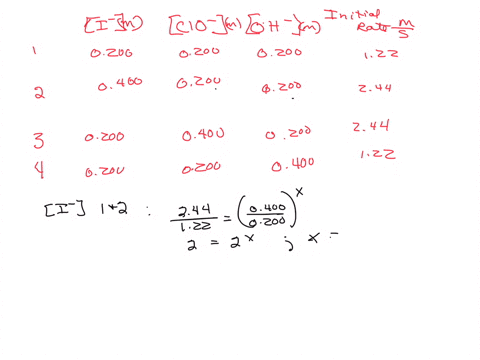 [I⁻](m) [ClO⁻](m) [OH⁻](m) Initial Rate M/S
1 0.200 0.200 0.200 1.22
2 0.400 0.200 0.200 2.44
3 0.200 0.400 0.200 2.44
4 0.200 0.200 0.400 1.22
[I⁻] 1+2 : 2.44/1.22 = (0.400/0.200)^x
2 = 2^x ; x =